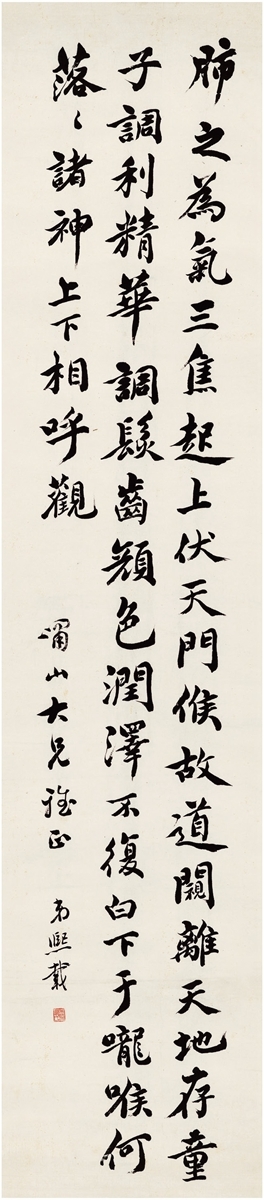 肺之為氣三焦起上伏天門候故道闚離天地存童
子調利精華調髮齒顏色潤澤不復白下于嚨喉何
落〻諸神上下相呼觀
山大兄雅正
弟熙載